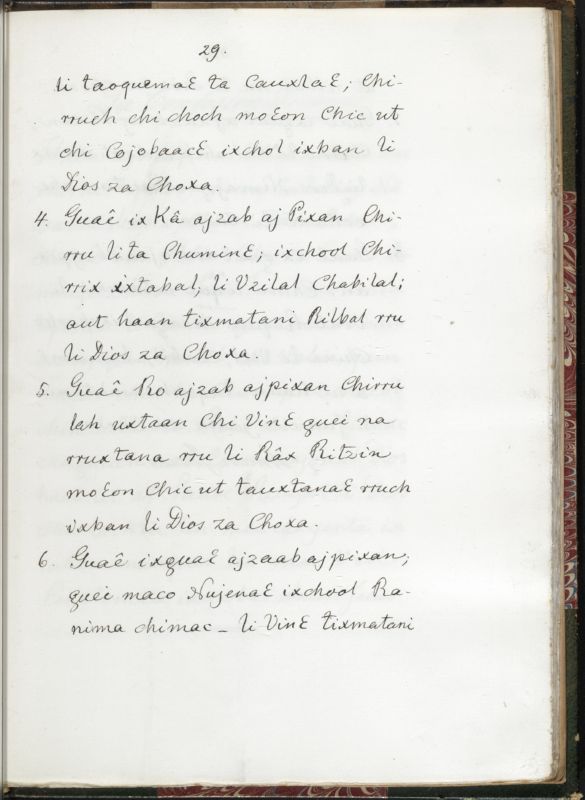 29.
li taoquemaƐ ta CauxlaE; Chi-
rruch chi choch moƐon Chic ut
chi CojobaacƐ ixchol ixban li
Dios za Choxa.
4. Guaê ix Kâ ajzab aj Pixan Chi-
rru li ta ChuminƐ; ixchool Chi-
rrix ixtabal; li Vzilal Chabilal;
aut haan tixmatani Rilbal rru
li Dios za Choxa.
5. Guaê Ro ajzab ajpixan Chirru
lah uxtaan Chi VinƐ quei na
rruxtana rru li Râx Ritzin
moƐon Chic ut tauxtanaƐ rruch
ixban li Dios za Choxa.
6. Guaê ixquaƐ ajzaab ajpixan;
quei maco NujenaƐ ixchool Ra-
nima chimac - li VinƐ tixmatani